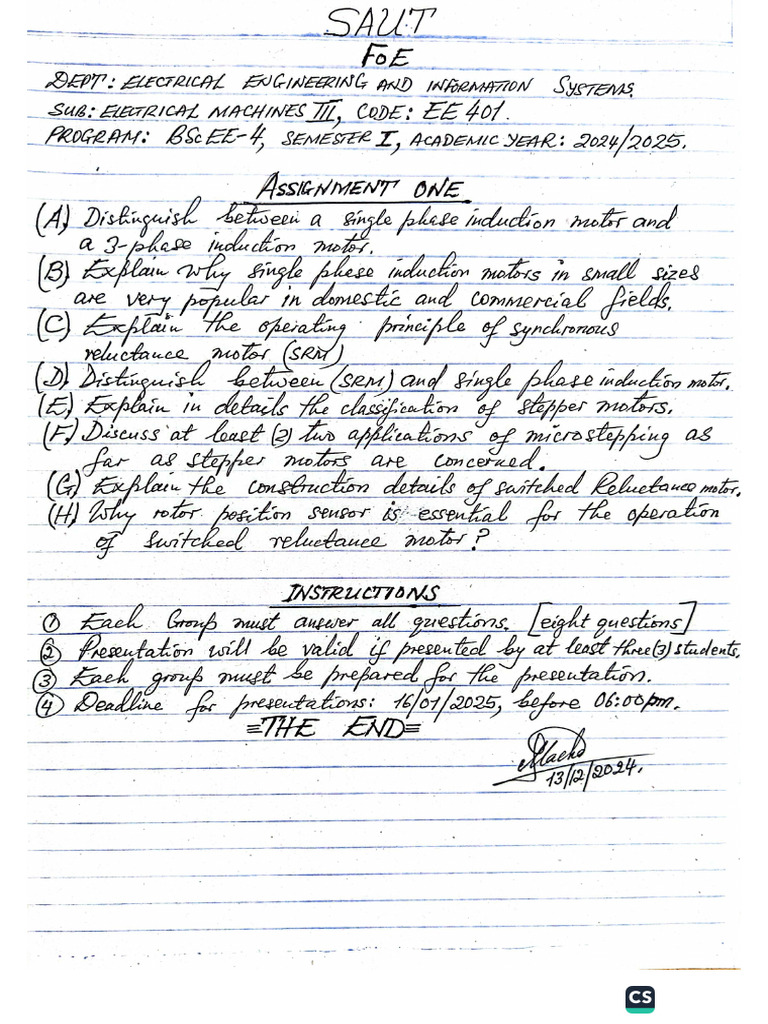 SAUT
FoE
DEPT: ELECTRICAL ENGINEERING AND INFORMATION SYSTEMS.
SUB: ELECTRICAL MACHINES III, CODE: EE 401.
PROGRAM: BSc EE-4, SEMESTER I, ACADEMIC YEAR: 2024/2025.
ASSIGNMENT ONE
(A) Distinguish between a single phase induction motor and
a 3-phase induction motor.
(B) Explain why single phase induction motors in small sizes
are very popular in domestic and commercial fields.
(C) Explain the operating principle of synchronous
reluctance motor (SRM)
(D) Distinguish between (SRM) and single phase induction motor.
(E) Explain in details the classification of stepper motors.
(F) Discuss at least (2) two applications of microstepping as
far as stepper motors are concerned.
(G) Explain the construction details of switched Reluctance motor.
(H) Why rotor position sensor is essential for the operation
of switched reluctance motor?
INSTRUCTIONS
① Each Group must answer all questions. [eight questions]
② Presentation will be valid if presented by at least three (3) students.
③ Each group must be prepared for the presentation.
④ Deadline for presentations: 16/01/2025, before 06:00pm.
≡THE END≡
13/12/2024.
CS